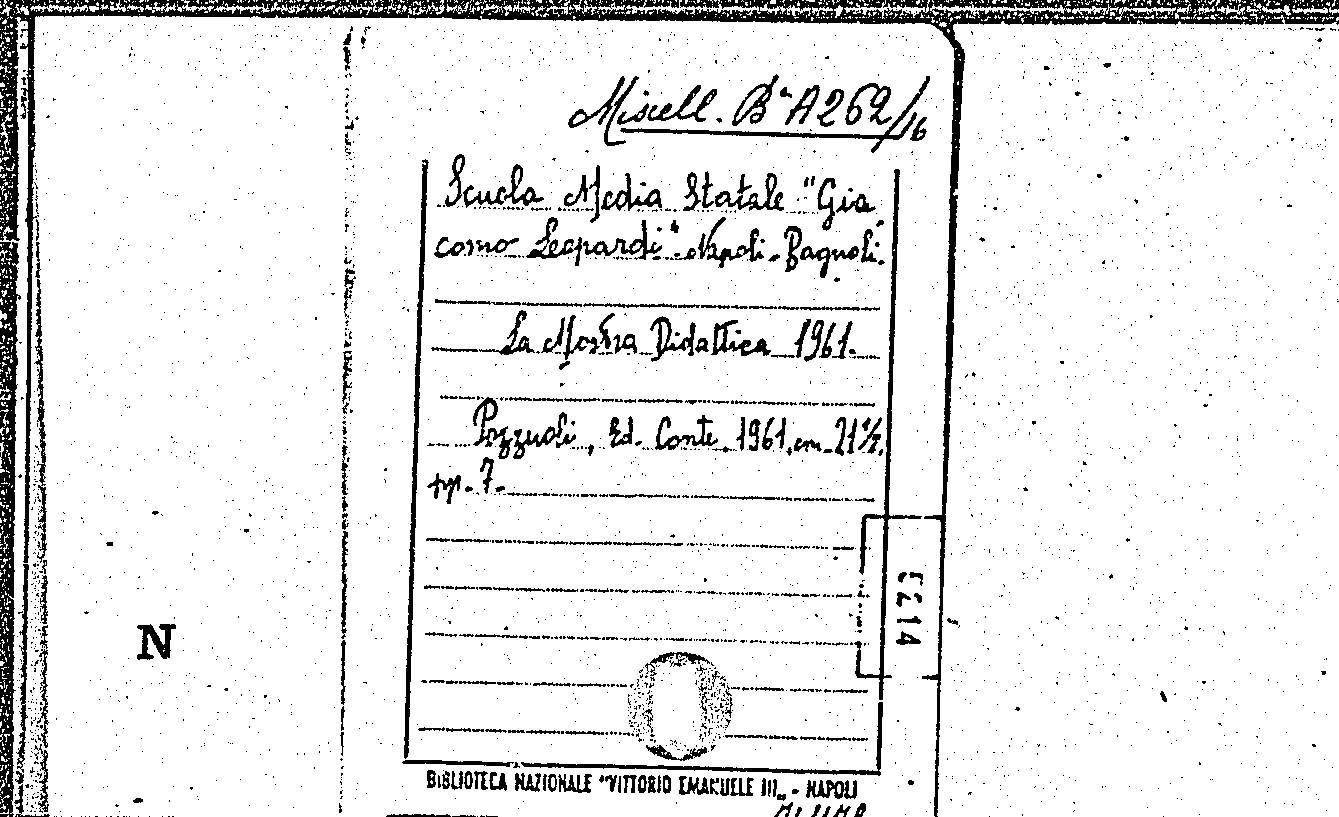 Miscell. Bª A262/16
Scuola Media Statale "Gia
como Leopardi". Napoli-Bagnoli.
La Mostra Didattica 1961.
Pozzuoli, Ed. Conte, 1961, cm. 21½,
pp. 7.
5214
N
BIBLIOTECA NAZIONALE "VITTORIO EMANUELE III„ - NAPOLI